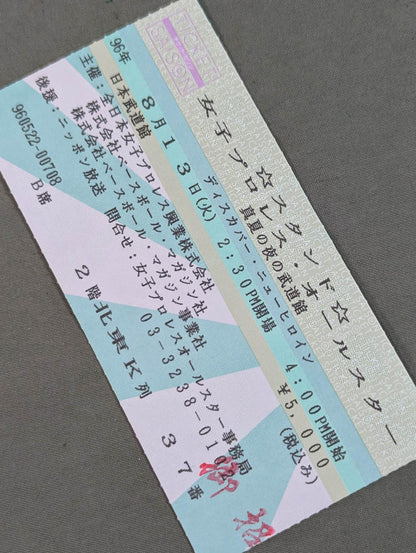 TICKET
SAISON
☆スタンド☆
女子プロレス・オールスター
真夏の夜の武道館
ディスカバー・ニューヒロイン
96年 8月13日(火) 2:30PM開場 4:00PM開始
日本武道館 ¥5,000(税込み)
主催:全日本女子プロレス興業株式会社
株式会社ベースボール・マガジン社
株式会社ベースボール・マガジン事業社
後援:ニッポン放送 問合せ:女子プロレスオールスター事務局
03-3238-01
960522-00708 B席 2階北東K列 37番